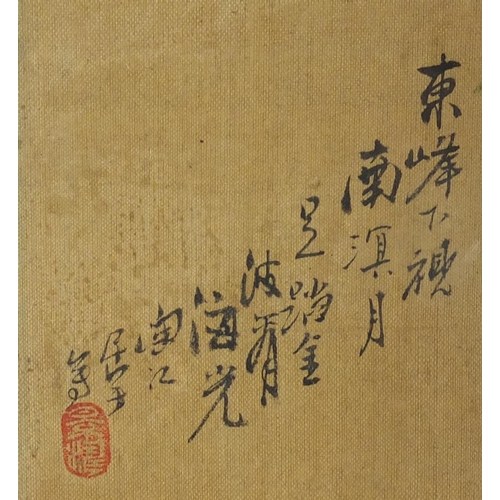 東峰下視
南溟月
足踏金
波看
海光
曲江
居士
寫